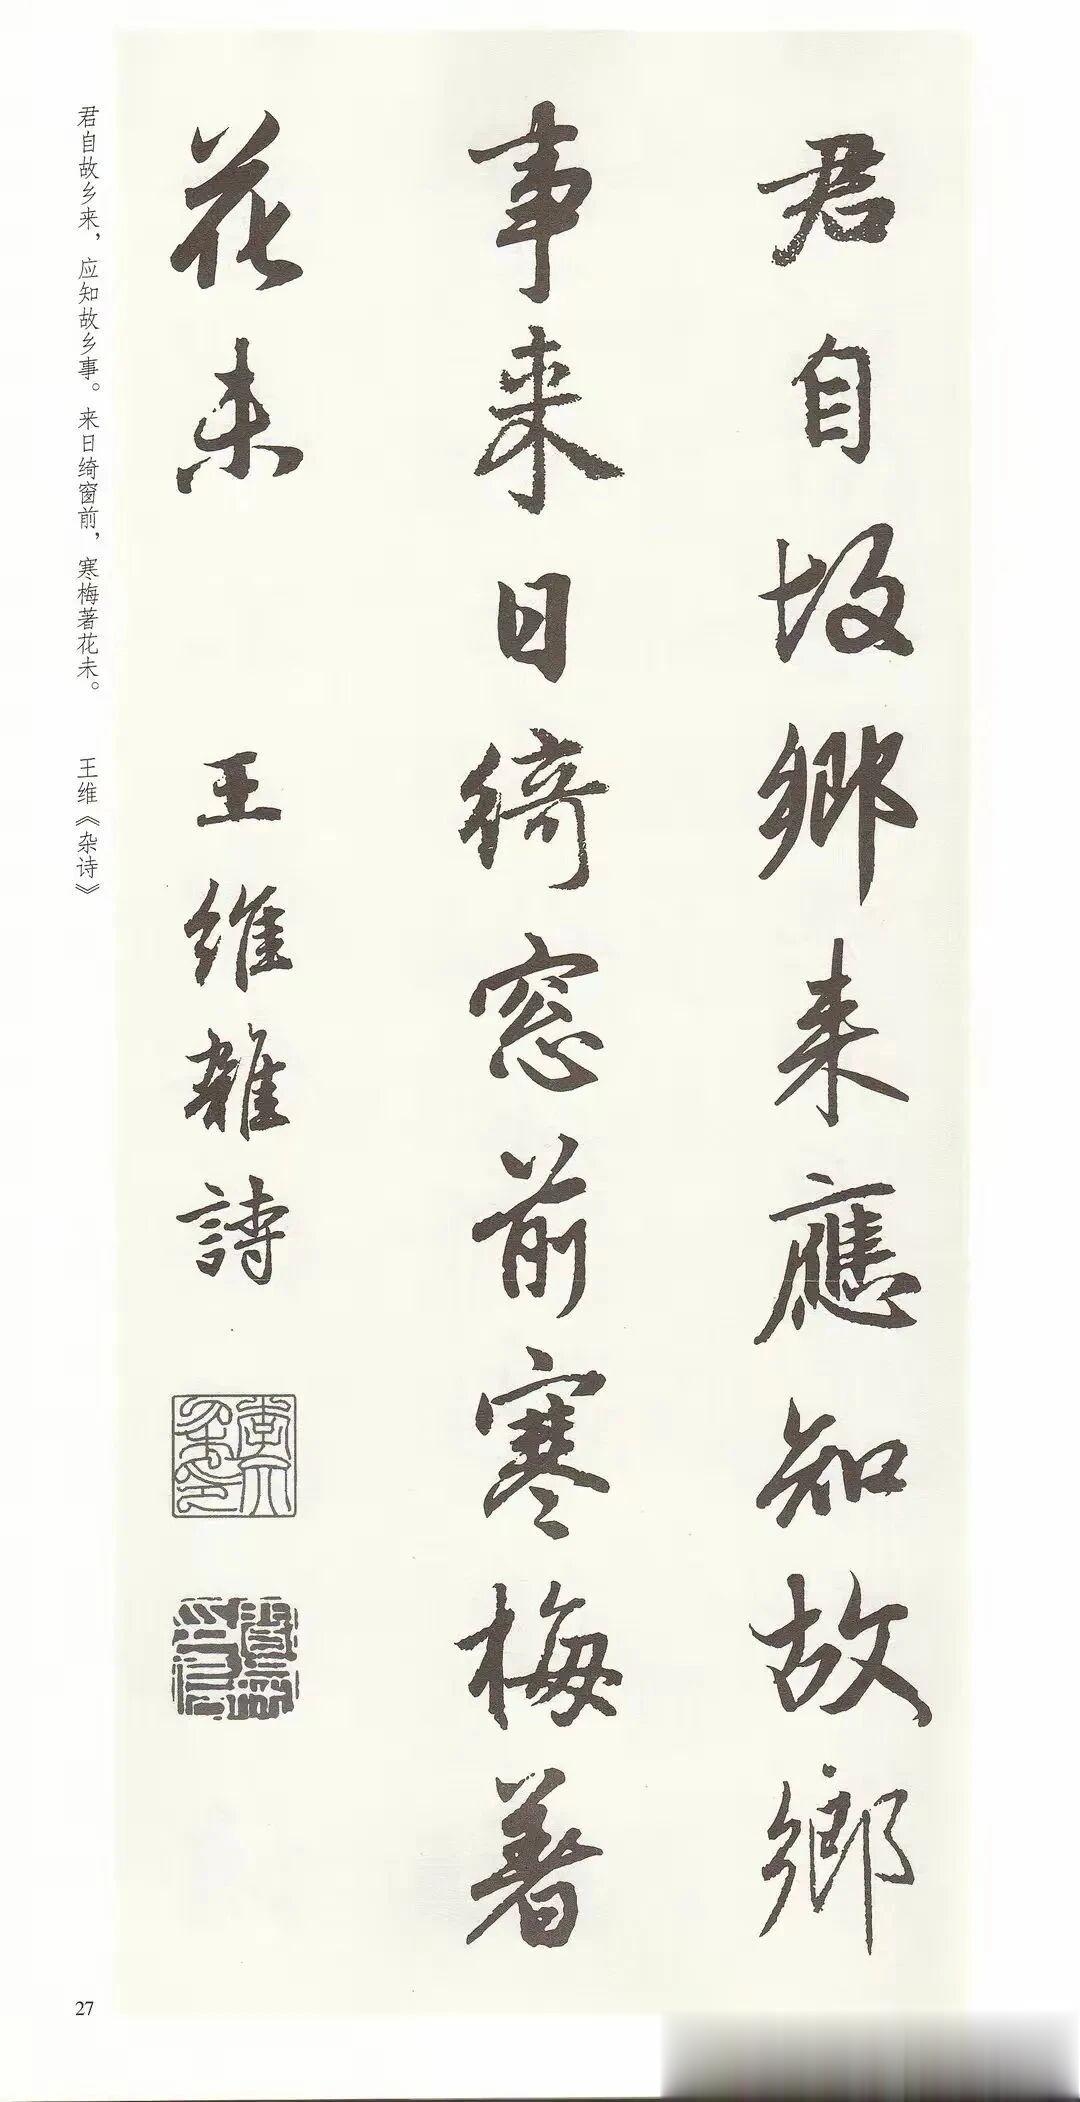 君自故鄉来應知故鄉
事来日綺窓前寒梅著
花未
王維雜詩
君自故乡来，应知故乡事。来日绮窗前，寒梅著花未。 王维《杂诗》
27